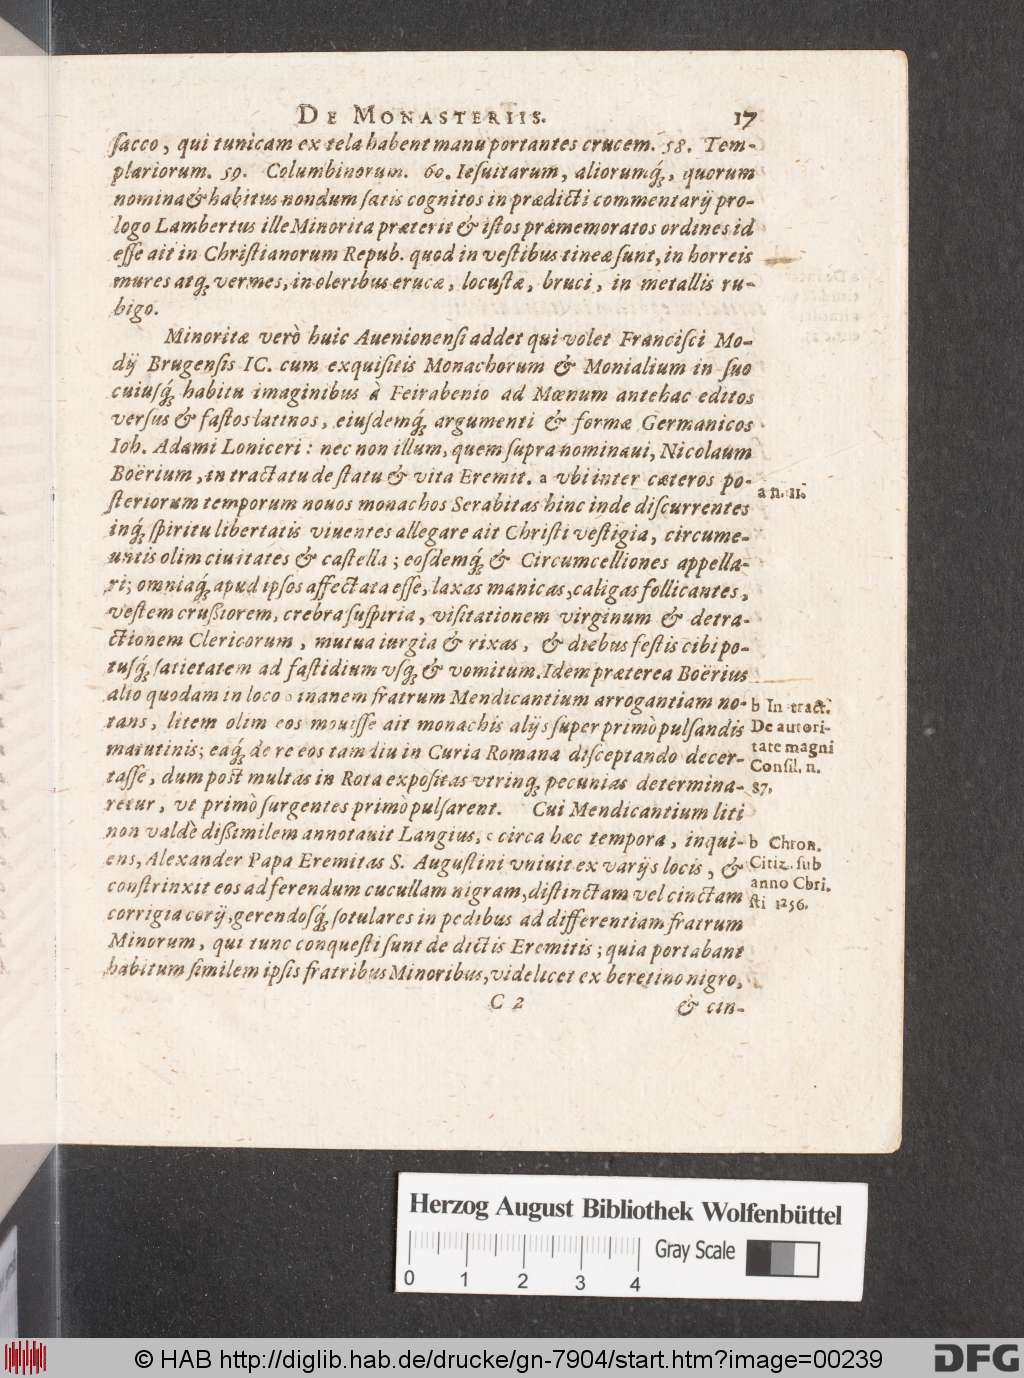 DE MONASTERIIS. 17
ſacco, qui tunicam ex tela habent manu portantes crucem. 58. Tem-
plariorum. 59. Columbinorum. 60. Ieſuitarum, aliorumq́ꝫ, quorum
nomina & habitus nondum ſatis cognitos in prædicti commentarij pro-
logo Lambertus ille Minorita præterit & iſtos præmemoratos ordines id
eſſe ait in Chriſtianorum Repub. quod in veſtibus tineæ ſunt, in horreis
mures atqꝫ vermes, in oleribus erucæ, locuſtæ, bruci, in metallis ru-
bigo.
Minoritæ verò huic Auenionenſi addet qui volet Franciſci Mo-
dij Brugenſis IC. cum exquiſitis Monachorum & Monialium in ſuo
cuiuſq́ꝫ habitu imaginibus à Feirabenio ad Mœnum antehac editos
verſus & faſtos latinos, eiuſdemq́ꝫ argumenti & formæ Germanicos
Ioh. Adami Loniceri: nec non illum, quem ſupra nominaui, Nicolaum
Boërium, in tractatu de ſtatu & vita Eremit. a vbi inter cæteros po-
a n. 11.
ſteriorum temporum nouos monachos Serabitas hinc inde diſcurrentes
inq́ꝫ ſpiritu libertatis viuentes allegare ait Chriſti veſtigia, circume-
untis olim ciuitates & caſtella; eoſdemq́ꝫ & Circumcelliones appella-
ri; omniaq́ꝫ apud ipſos affectata eſſe, laxas manicas, caligas follicantes,
veſtem craſſiorem, crebra ſuſpiria, viſitationem virginum & detra-
ctionem Clericorum, mutua iurgia & rixas, & diebus feſtis cibi po-
tuſq́ꝫ ſatietatem ad faſtidium vſqꝫ & vomitum. Idem præterea Boërius
alio quodam in loco b inanem fratrum Mendicantium arrogantiam no-
b In tract.
tans, litem olim eos mouiſſe ait monachis alijs ſuper primò pulſandis
De autori-
matutinis; eaq́ꝫ de re eos tam diu in Curia Romana diſceptando decer-
tate magni
Conſil. n.
taſſe, dum poſt multas in Rota expoſitas vtrinqꝫ pecunias determina-
87.
retur, vt primò ſurgentes primò pulſarent. Cui Mendicantium liti
non valdè diſſimilem annotauit Langius, c circa hæc tempora, inqui-
b Chron.
ens, Alexander Papa Eremitas S. Auguſtini vniuit ex varijs locis, &
Citiz. ſub
conſtrinxit eos ad ferendum cucullam nigram, diſtinctam vel cinctam
anno Chri.
ſti 1256.
corrigia corij, gerendoſq́ꝫ ſotulares in pedibus ad differentiam fratrum
Minorum, qui tunc conqueſti ſunt de dictis Eremitis; quia portabant
habitum ſimilem ipſis fratribus Minoribus, videlicet ex beretino nigro,
C 2 & cin-
Herzog August Bibliothek Wolfenbüttel
Gray Scale
0 1 2 3 4
© HAB http://diglib.hab.de/drucke/gn-7904/start.htm?image=00239
DFG